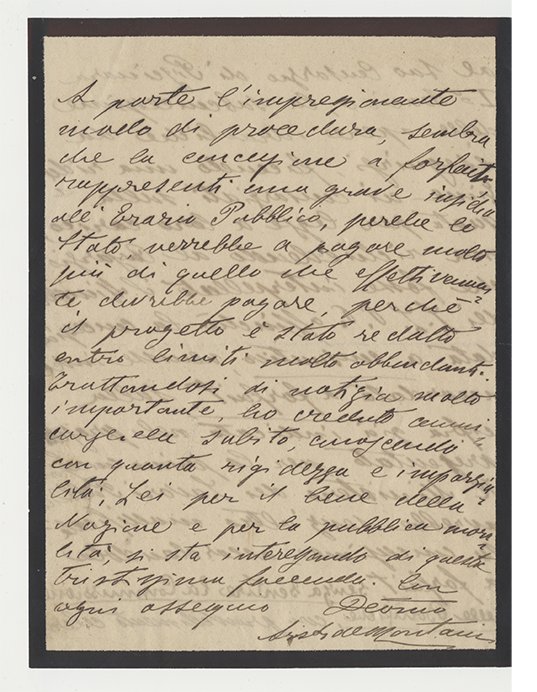 A parte l'impregionante
modo di procedura, sembra
che la concessione a forfait
rappresenti una grave insidia
all'Erario Pubblico, perchè lo
Stato, verrebbe a pagare molto
più di quello che effettivamen=
te dovrebbe pagare, perchè
il progetto è stato redatto
entro limiti molto abbondanti.
Trattandosi di notizia molto
importante, ho creduto comuni=
cargliela subito, conoscendo
con quanta rigidezza e imparzia=
lità, Lei per il bene della
Nazione e per la pubblica mora=
lità, si sta interessando di questa
tristissima faccenda. Con
ogni ossequio Devmo